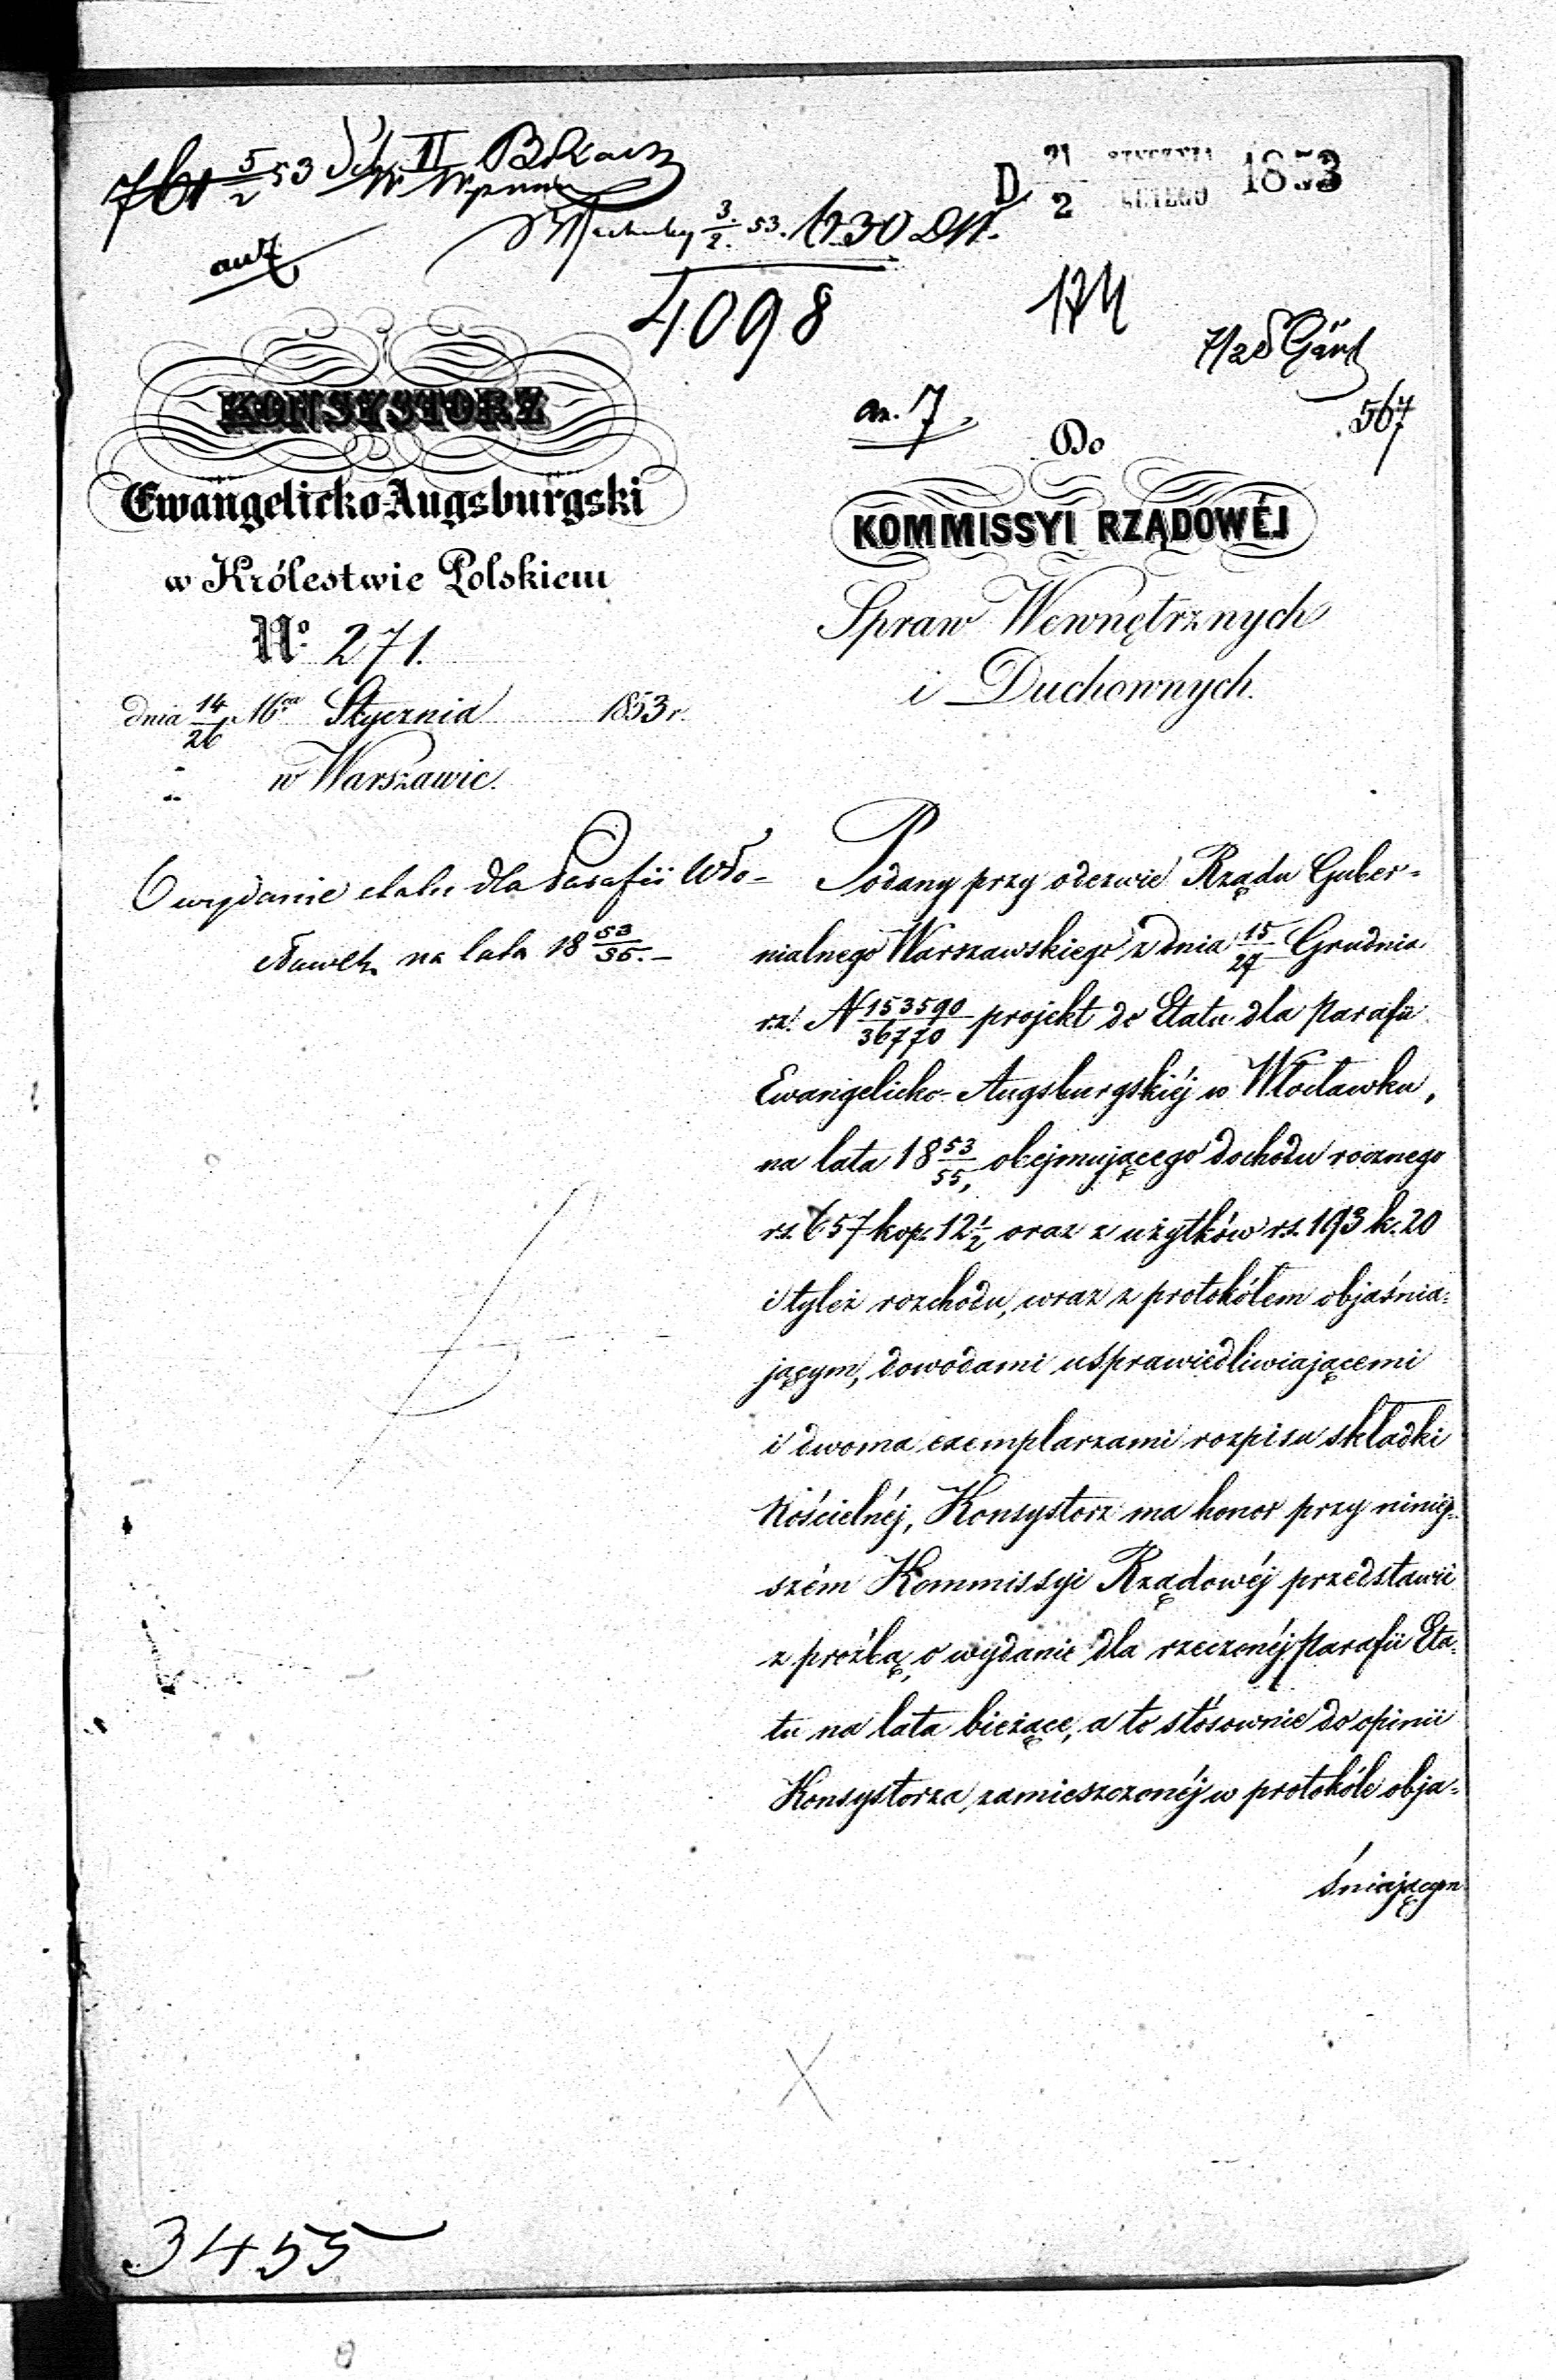 761 5/2 53
3/2. 53. 1230
auz
4098
D 21/2 STYCZNIA/LUTEGO 1853
174
567
an. 7
KONSYSTORZ
Ewangelicko-Augsburgski
w Królestwie Polskiem
Nº 271.
dnia 14/26 Stycznia 1853 r.
w Warszawie.
O wydanie etatu dla Parafii Wło-
cławek na lata 18 53/55.-
Do
KOMMISSYI RZĄDOWÉJ
Spraw Wewnętrznych
i Duchownych.
Podany przy odezwie Rządu Guber-
nialnego Warszawskiego z dnia 15/27 Grudnia
r.z. N 153590/36770 projekt do Etatu dla Parafii
Ewangelicko-Augsburgskiéj w Włocławku,
na lata 18 53/55, obejmującego dochodu rocznego
rs. 657 kop. 12 1/2 oraz z użytków rs. 193 k. 20
i tyleż rozchodu, wraz z protokółem objaśnia-
jącym, dowodami usprawiedliwiającemi
i dwoma exemplarzami rozpisu składki
Kościelnéj, Konsystorz ma honor przy niniej-
szém Kommissyi Rządowéj przedstawić
z prośbą, o wydanie dla rzeczonéj Parafii Eta-
tu na lata bieżące, a to stósownie do opinii
Konsystorza zamieszczonéj w protokóle obja-
śniającym
3455